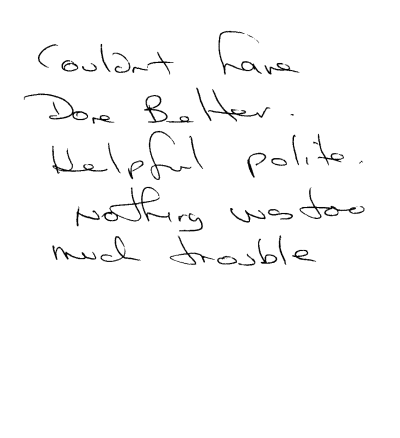 Couldnt have
Done Better.
Helpful polite.
Nothing was too
much trouble